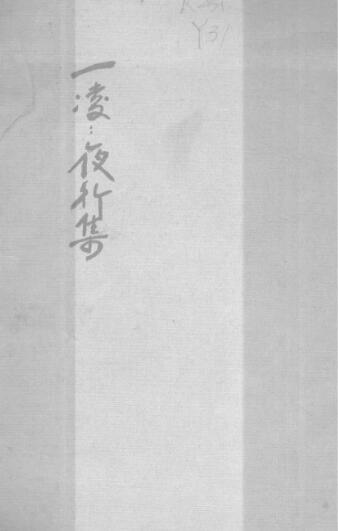 一凌：夜行集
Y31